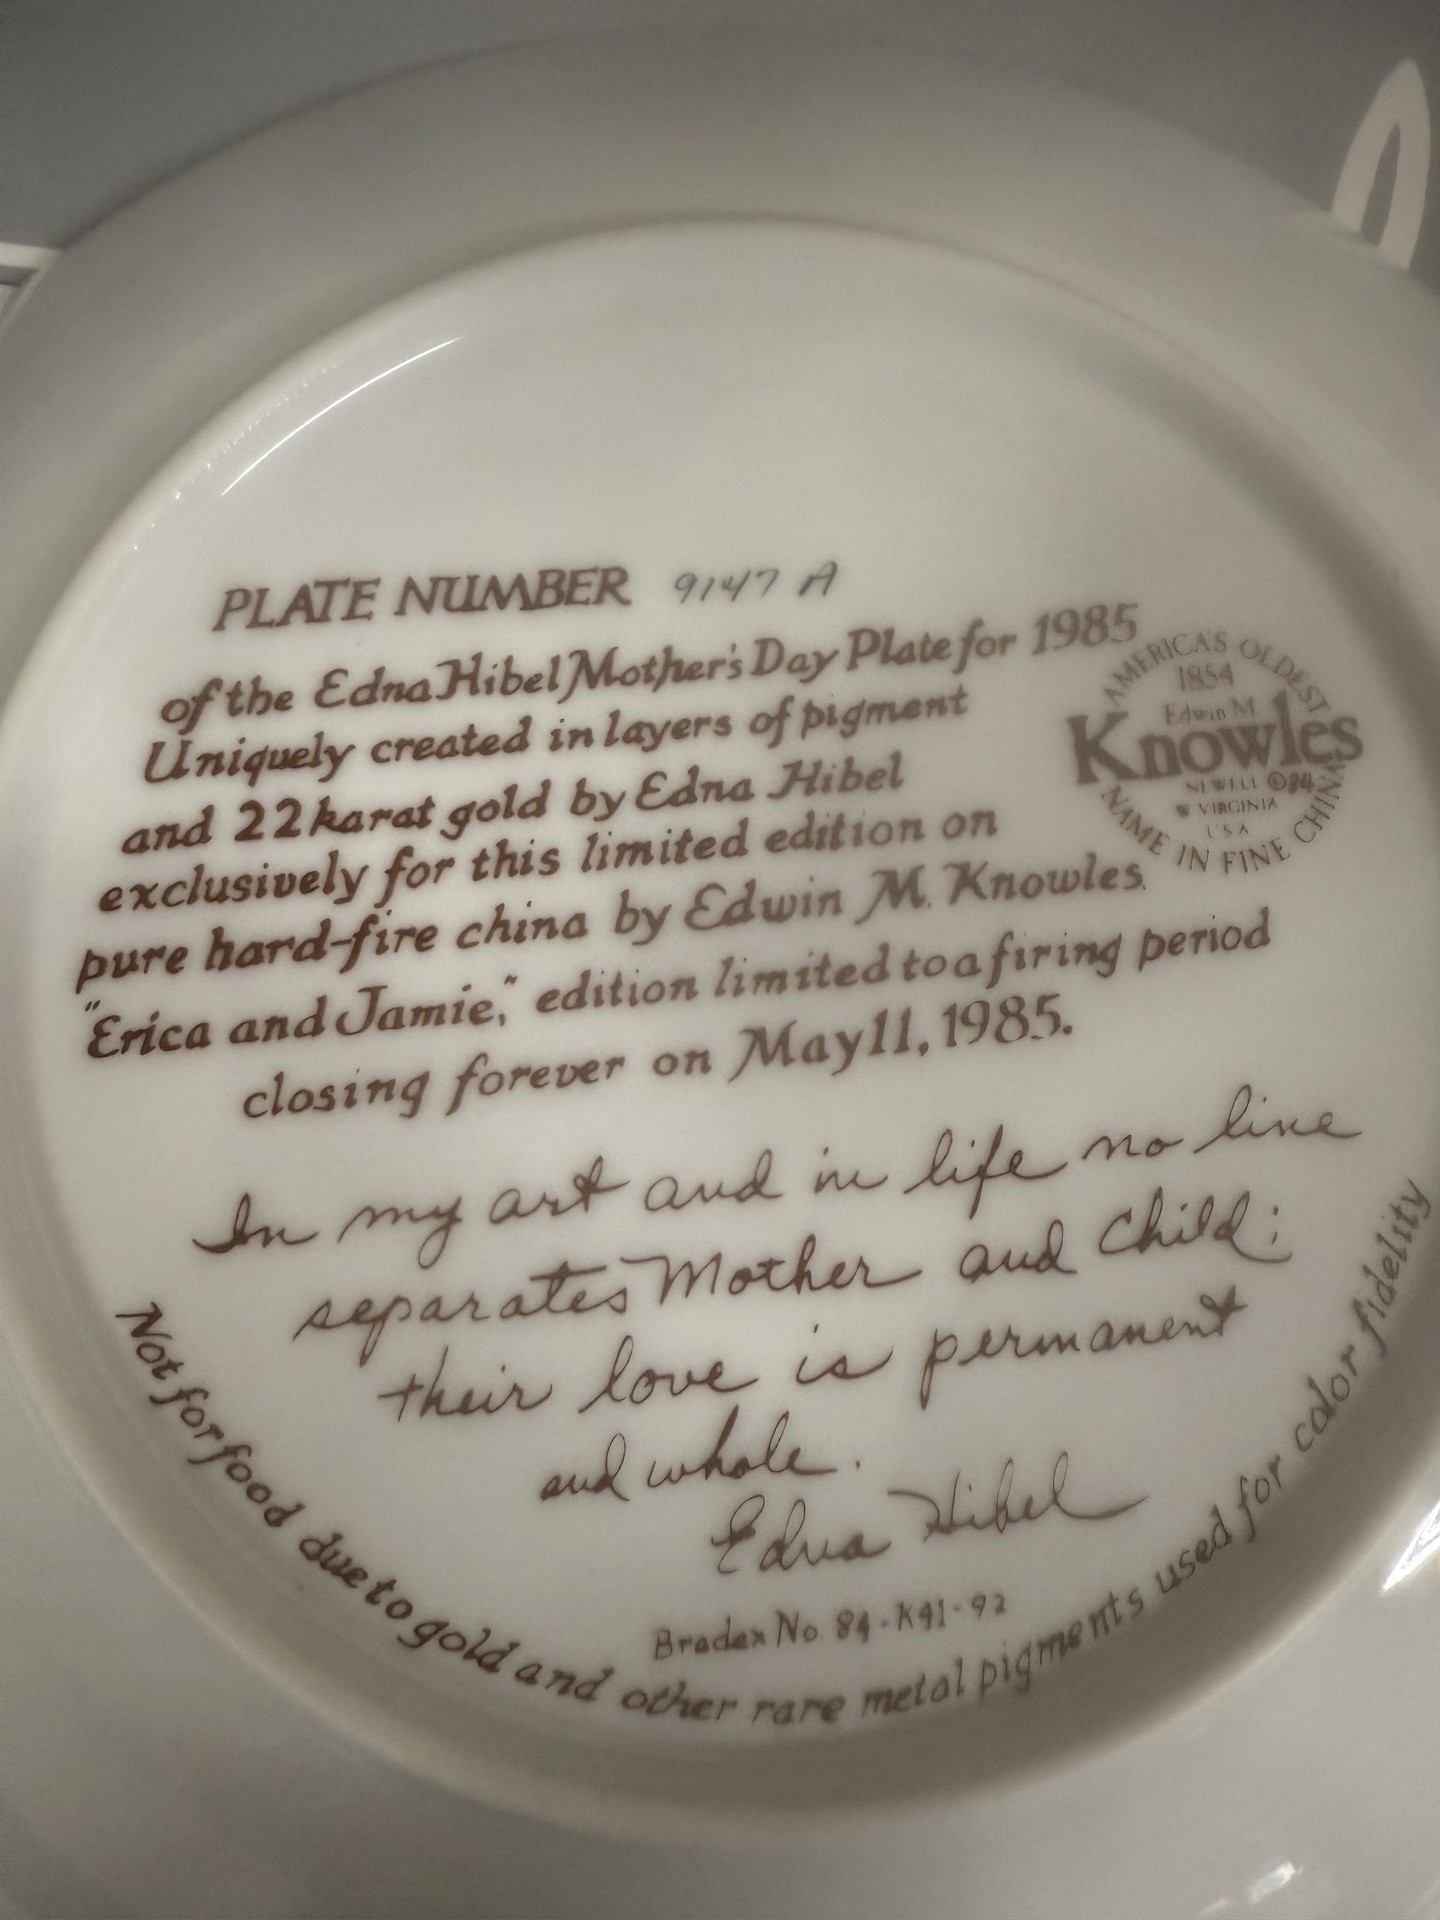 PLATE NUMBER 9147 A
of the Edna Hibel Mother's Day Plate for 1985
Uniquely created in layers of pigment
and 22 karat gold by Edna Hibel
exclusively for this limited edition on
pure hard-fire china by Edwin M. Knowles.
"Erica and Jamie," edition limited to a firing period
closing forever on May 11, 1985.
AMERICA'S OLDEST
1854
Edwin M
Knowles
NEWELL ©84
W VIRGINIA
USA
NAME IN FINE CHINA
In my art and in life no line
separates Mother and Child;
their love is permanent
and whole.
Edna Hibel
Bradex No. 84-K41-92
Not for food due to gold and other rare metal pigments used for color fidelity